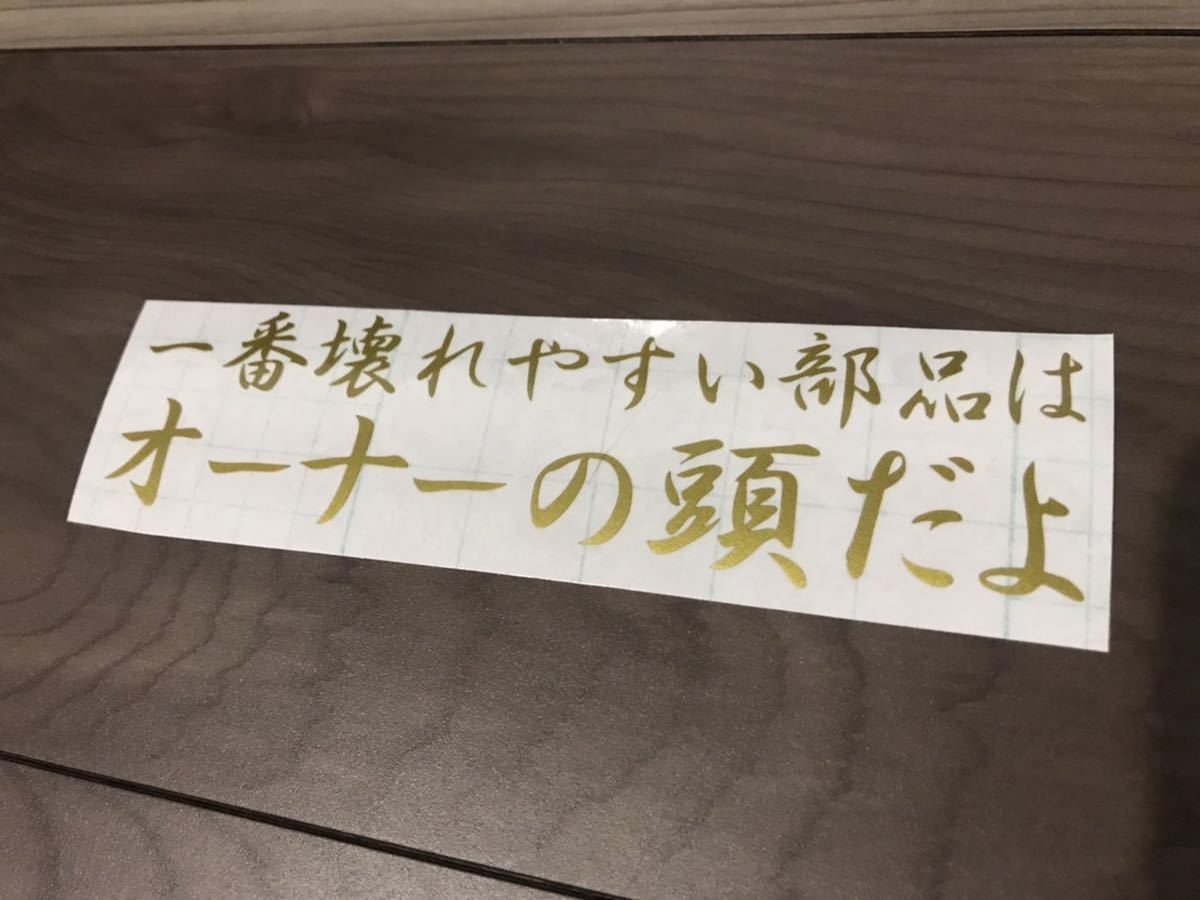 一番壊れやすい部品は
オーナーの頭だよ